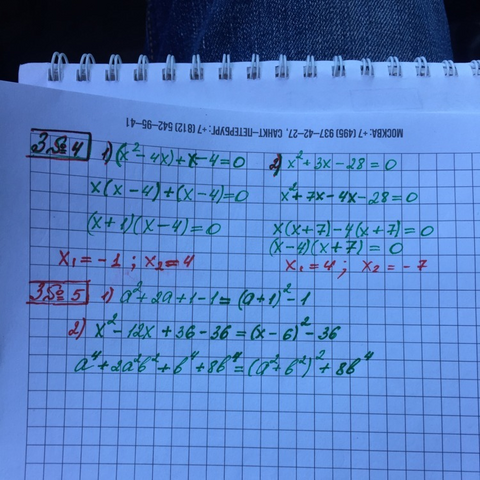 МОСКВА: +7 (495) 937-42-27, САНКТ-ПЕТЕРБУРГ: +7 (812) 542-95-41
З№4 1) (x² - 4x) + x - 4 = 0
x(x - 4) + (x - 4) = 0
(x + 1)(x - 4) = 0
x₁ = -1 ; x₂ = 4
2) x² + 3x - 28 = 0
x² + 7x - 4x - 28 = 0
x(x + 7) - 4(x + 7) = 0
(x - 4)(x + 7) = 0
x₁ = 4 ; x₂ = -7
З№5 1) a² + 2a + 1 - 1 = (a + 1)² - 1
2) x² - 12x + 36 - 36 = (x - 6)² - 36
a⁴ + 2a²b² + b⁴ + 8b⁴ = (a² + b²)² + 8b⁴